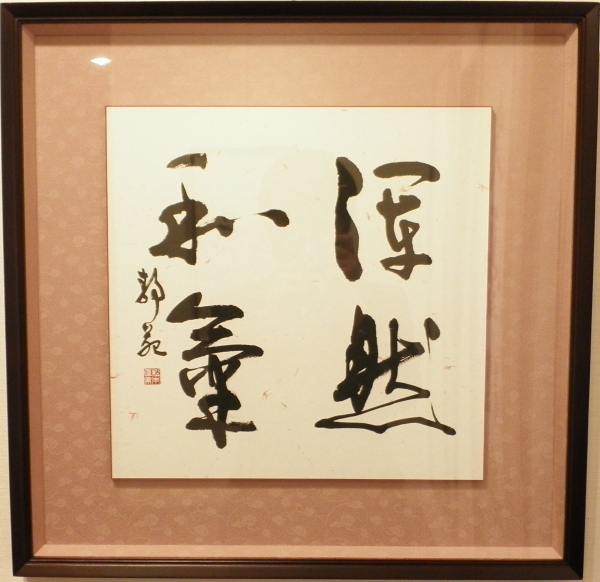 渾然
和氣
靜苑